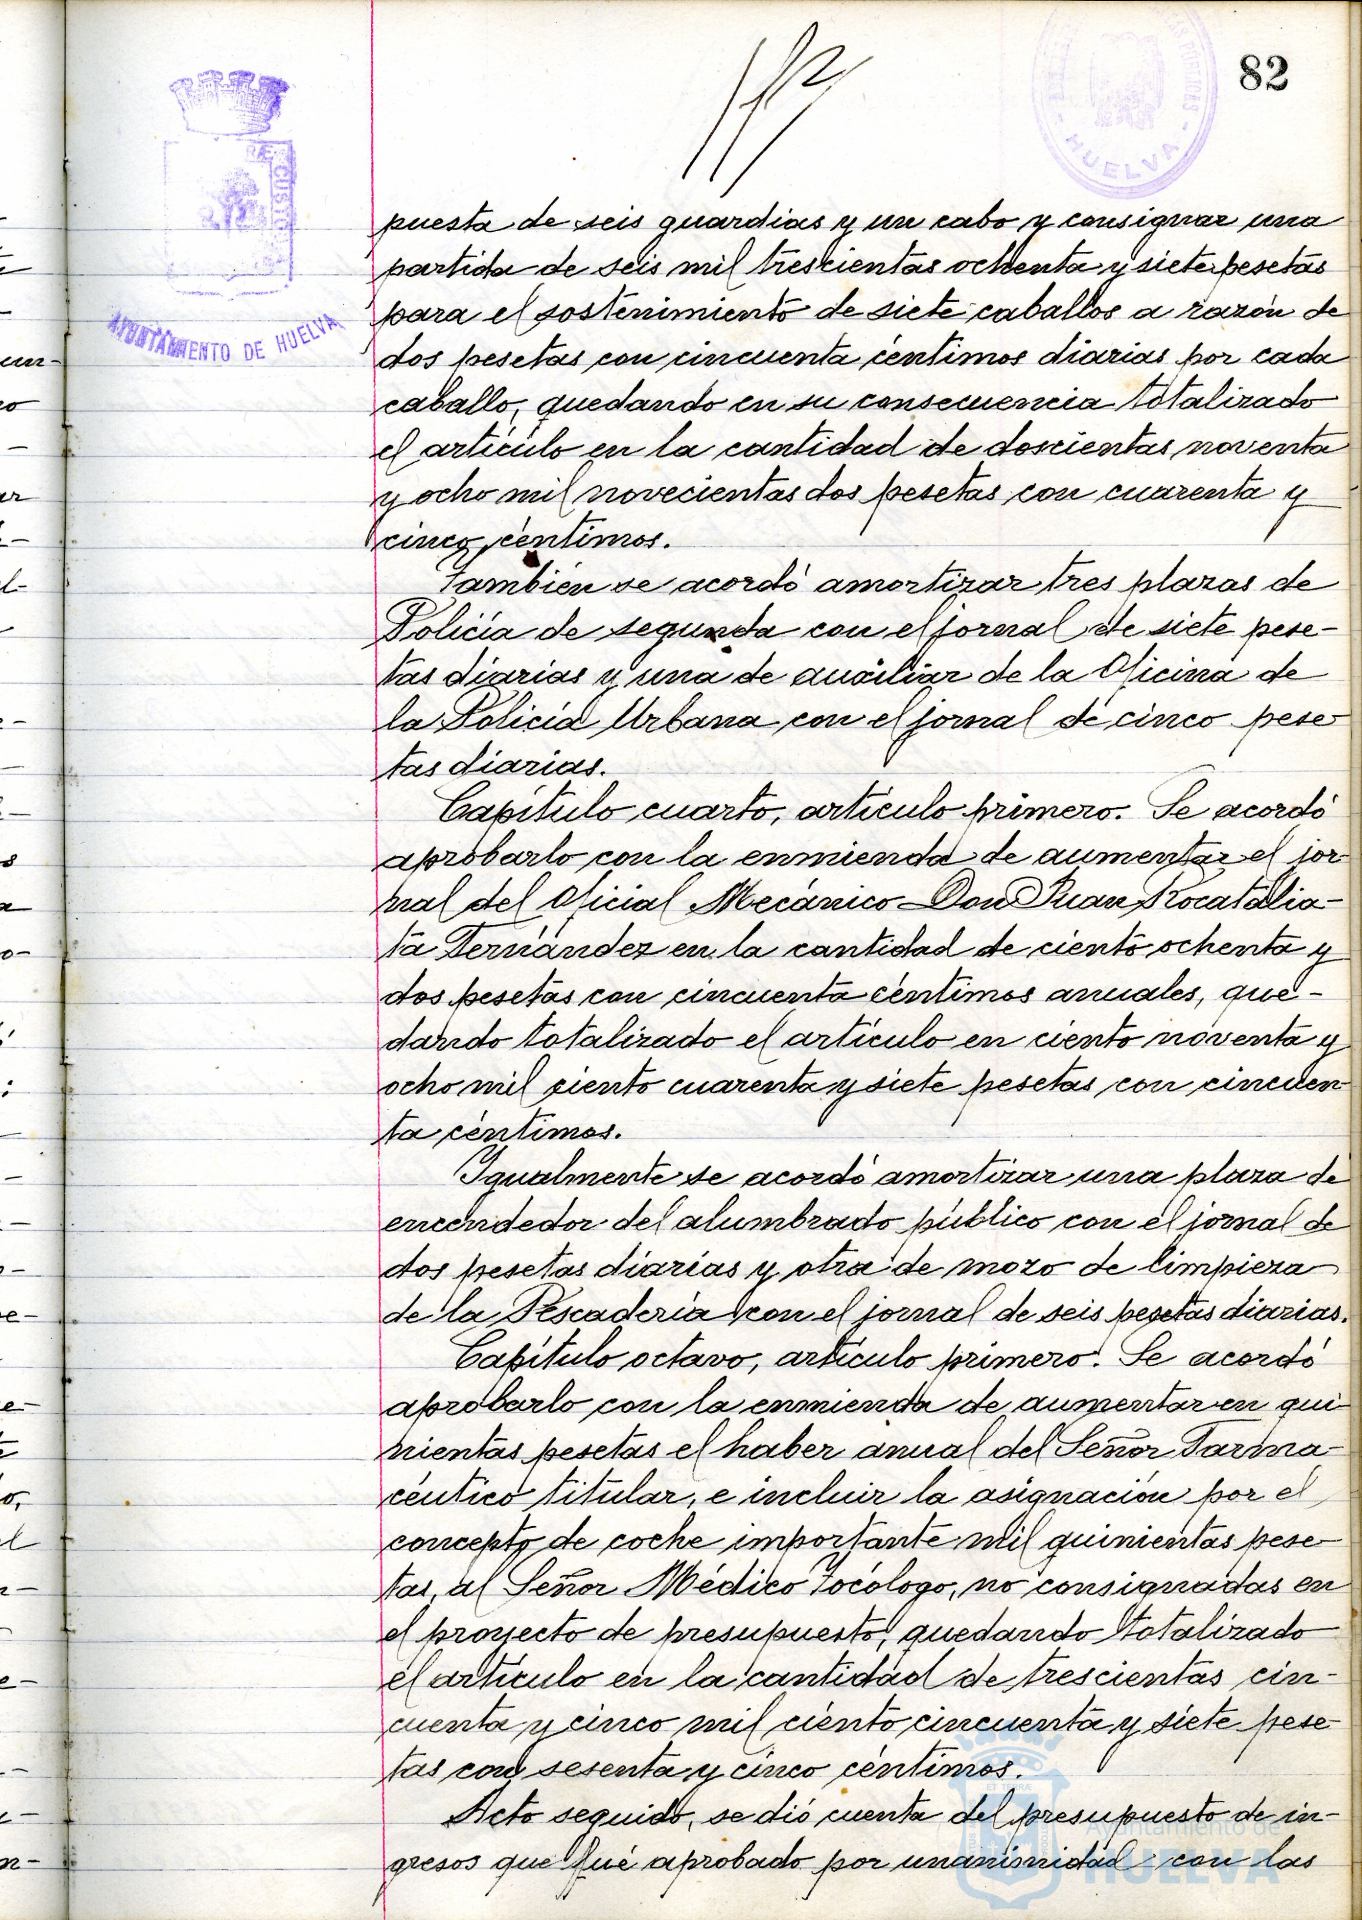 82
HUELVA
AYUNTAMIENTO DE HUELVA
puesta de seis guardias y un cabo y consignar una
partida de seis mil trescientas ochenta y siete pesetas
para el sostenimiento de siete caballos a razón de
dos pesetas con cincuenta céntimos diarias por cada
caballo, quedando en su consecuencia totalizado
el artículo en la cantidad de doscientas noventa
y ocho mil novecientas dos pesetas con cuarenta y
cinco céntimos.
También se acordó amortizar tres plazas de
Policía de segunda con el jornal de siete pese-
tas diarias y una de auxiliar de la Oficina de
la Policía Urbana con el jornal de cinco pese-
tas diarias.
Capítulo cuarto, artículo primero. Se acordó
aprobarlo con la enmienda de aumentar el jor-
nal del Oficial Mecánico Don Juan Rocatalia-
ta Fernández en la cantidad de ciento ochenta y
dos pesetas con cincuenta céntimos anuales, que-
dando totalizado el artículo en ciento noventa y
ocho mil ciento cuarenta y siete pesetas con cincuen-
ta céntimos.
Igualmente se acordó amortizar una plaza de
encendedor del alumbrado público con el jornal de
dos pesetas diarias y otra de mozo de limpieza
de la Pescadería con el jornal de seis pesetas diarias.
Capítulo octavo, artículo primero. Se acordó
aprobarlo con la enmienda de aumentar en qui-
nientas pesetas el haber anual del Señor Farma-
céutico titular, e incluir la asignación por el
concepto de coche importante mil quinientas pese-
tas, al Señor Médico Tocólogo, no consignadas en
el proyecto de presupuesto, quedando totalizado
el artículo en la cantidad de trescientas cin-
cuenta y cinco mil ciento cincuenta y siete pese-
tas con sesenta y cinco céntimos.
Acto seguido, se dió cuenta del presupuesto de in-
gresos que fué aprobado por unanimidad con las
Ayuntamiento de
HUELVA